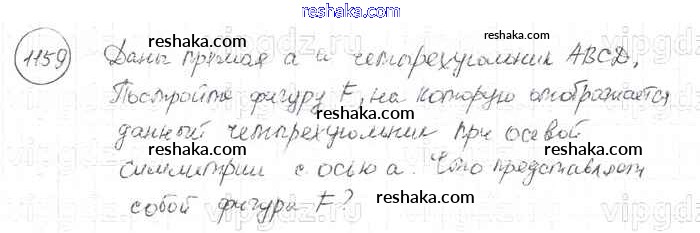 reshaka.com
1159 Даны прямая a и четырехугольник ABCD.
reshaka.com reshaka.com
Постройте фигуру F, на которую отображается
reshaka.com
данный четырехугольник при осевой
reshaka.com reshaka.com
симметрии с осью a. Что представляет
reshaka.com
собой фигура F?
reshaka.com